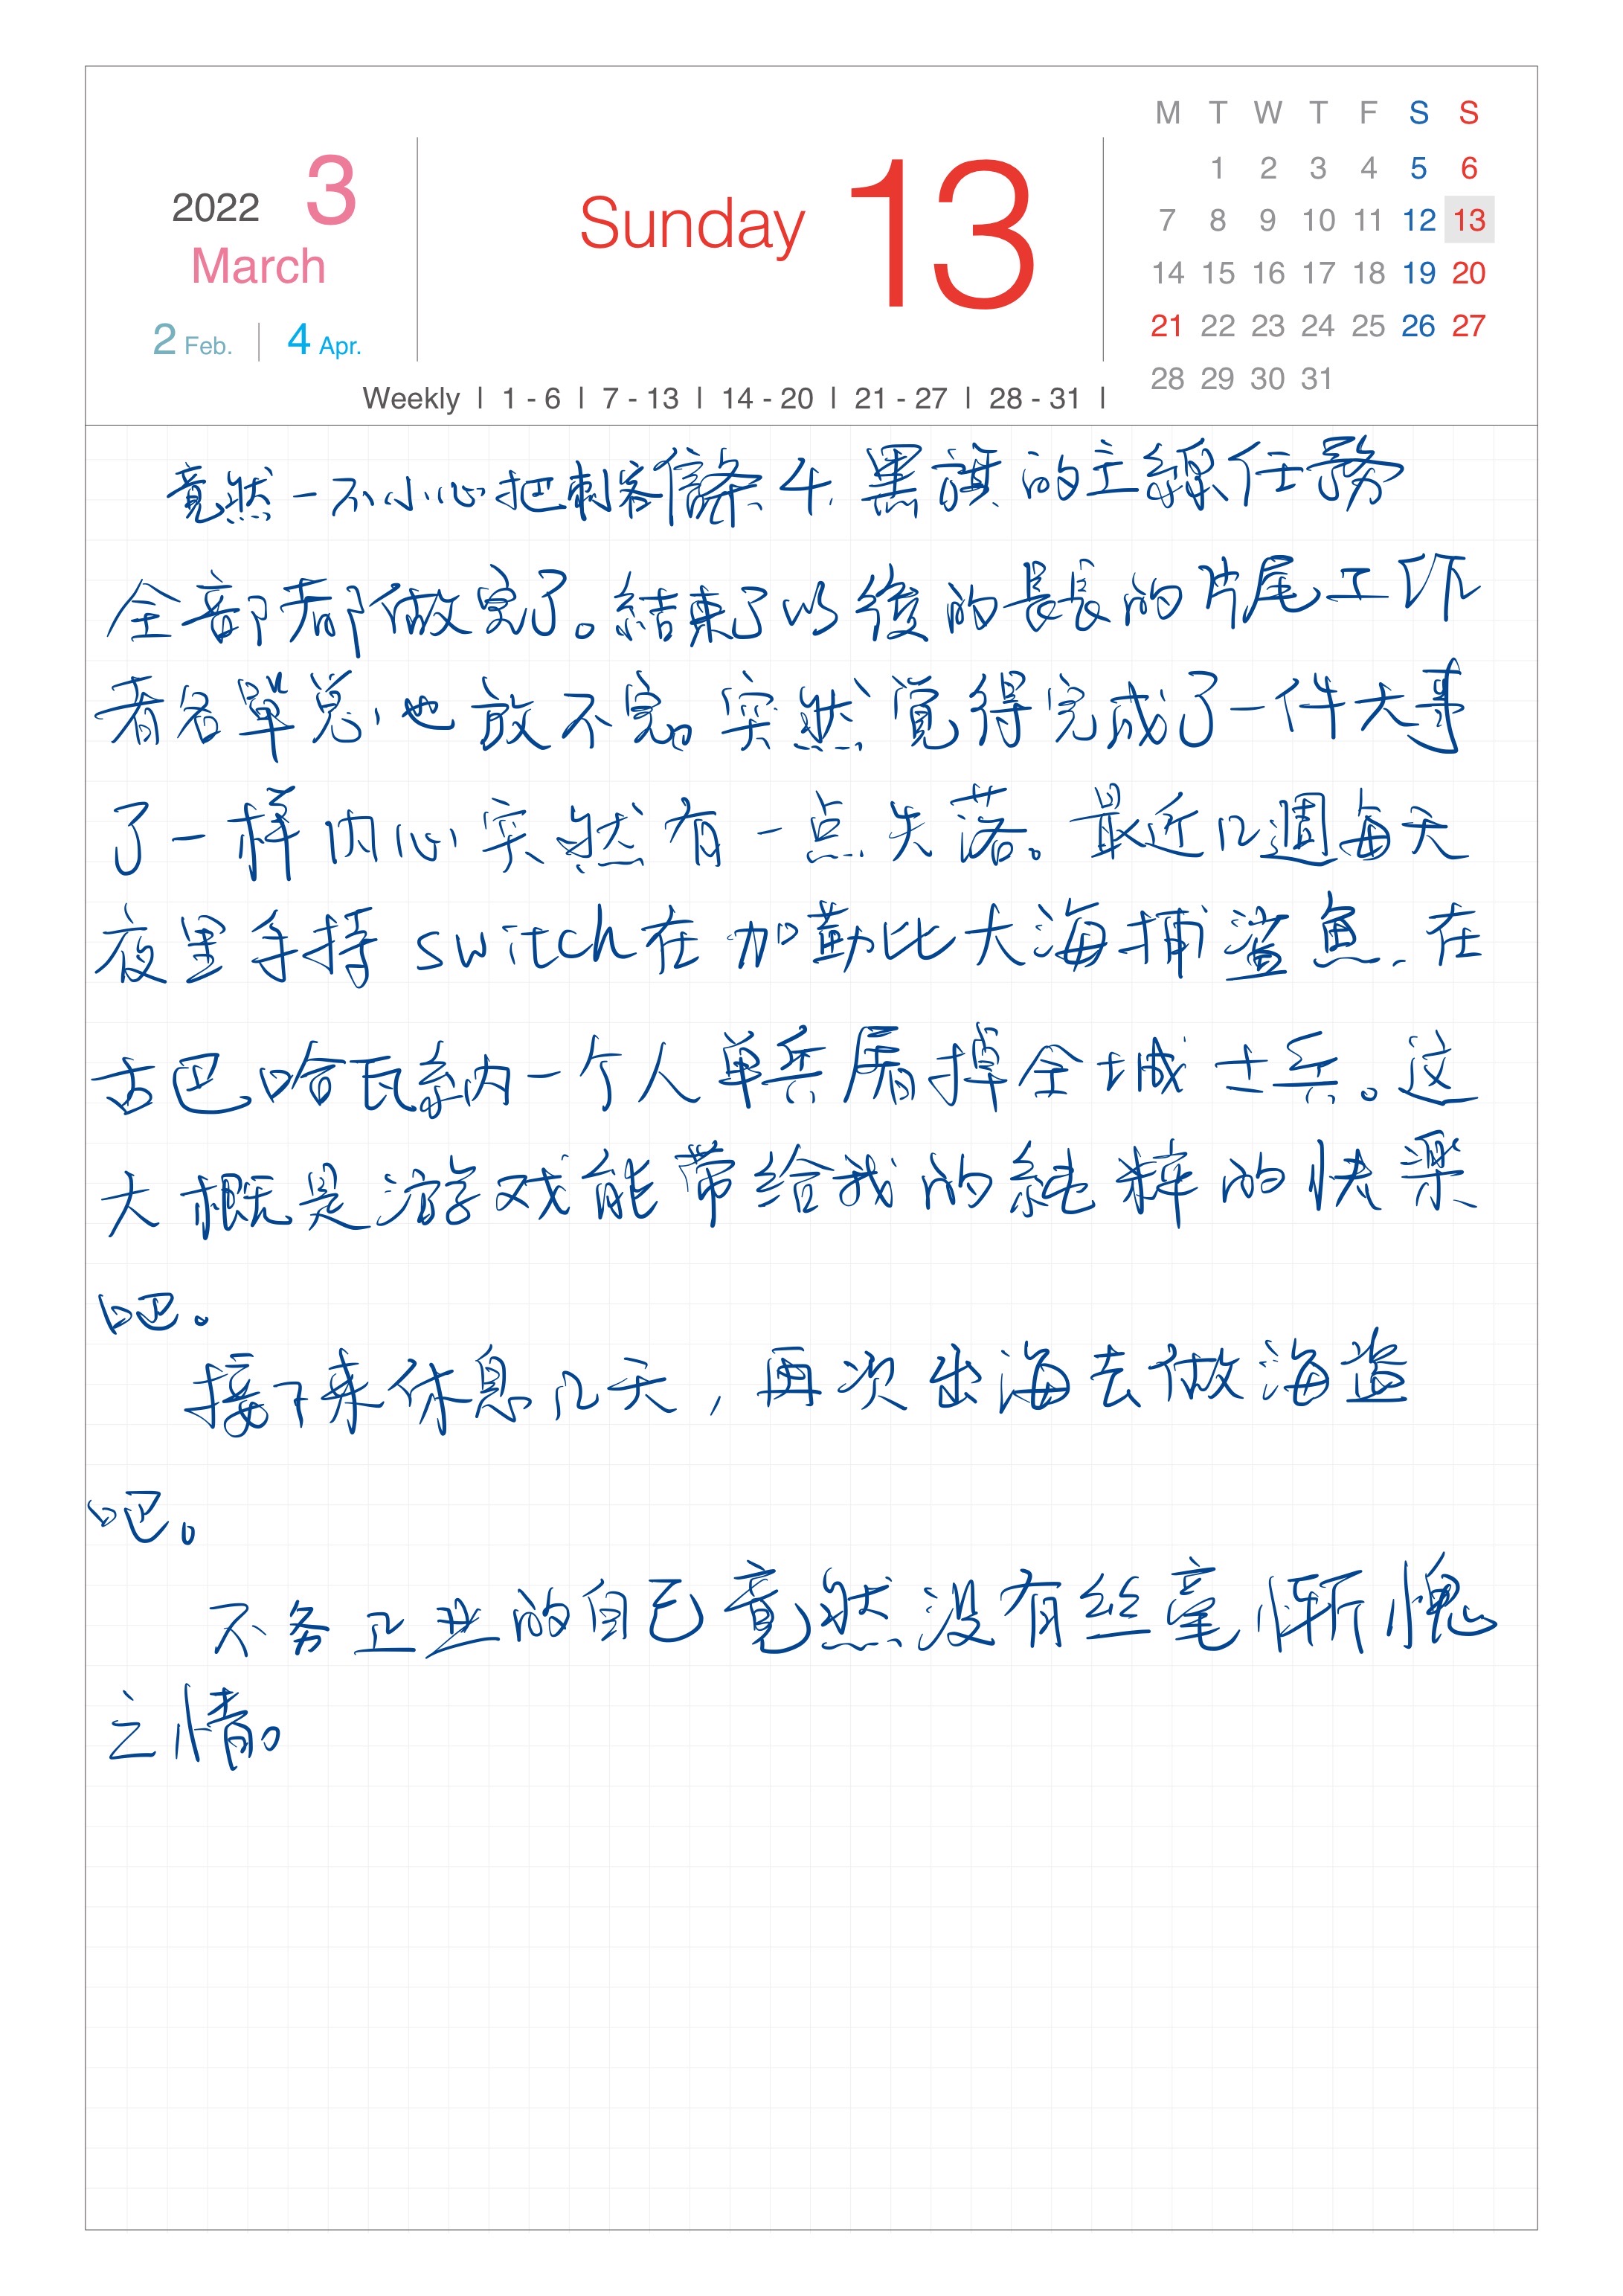 2022 3
March
2 Feb. | 4 Apr.
Sunday 13
M T W T F S S
1 2 3 4 5 6
7 8 9 10 11 12 13
14 15 16 17 18 19 20
21 22 23 24 25 26 27
28 29 30 31
Weekly | 1 - 6 | 7 - 13 | 14 - 20 | 21 - 27 | 28 - 31 |
竟然一不小心把刺客信条4.黑旗的主線任務
全部都做完了。結束了以後的長長的片尾工作
者名單总也放不完。突然覺得完成了一件大事
了一样内心突然有一点失落。最近几週每天
夜里手持switch在加勒比大海捕鲨鱼.在
古巴哈瓦納一个人单兵屠掉全城士兵。这
大概是游戏能带给我的純粹的快樂
吧。
接下来休息几天，再次出海去做海盗
吧。
不务正业的自己竟然没有丝毫惭愧
之情。